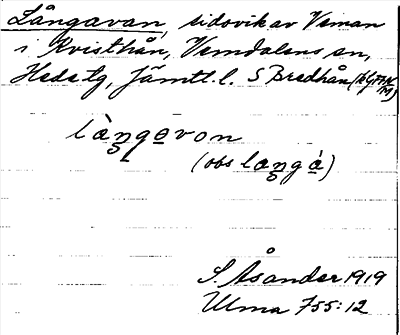 Långavan, sidovik av Veman
i Kvisthån, Vemdalens sn,
Hede tg, Jämtl. l. S Bredhån
làngavon
(obs langà)
S. Åsander 1919
Ulma 755:12